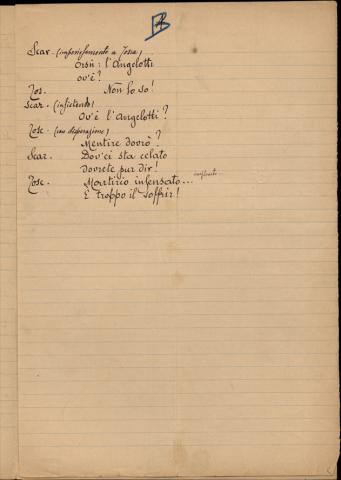 B
Scar. (imperiosamente a Tosca)
Orsù: l'Angelotti
ov'è?
Tos. Non lo so!
Scar. (insistendo)
Ov'è l'Angelotti?
Tosc. (con disperazione)
Mentire dovrò?
Scar. Dov'ei sta celato
dovrete pur dir!
Tosc. Martirio insensato...
È troppo il soffrir!